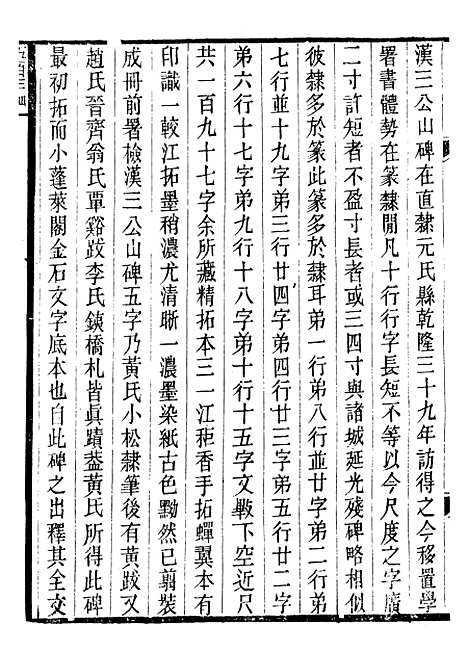 漢三公山碑在直隸元氏縣乾隆三十九年訪得之今移置學
署書體勢在篆隸閒凡十行行字長短不等以今尺度之字廣
二寸許短者不盈寸長者或三四寸與諸城延光殘碑略相似
彼隸多於篆此篆多於隸耳弟一行弟八行並廿字弟二行弟
七行並十九字弟三行廿四字弟四行廿三字弟五行廿二字
弟六行十七字弟九行十八字弟十行十五字文戰下空近尺
共一百九十七字余所藏精拓本三一江秬香手拓蟬翼本有
印識一較江拓墨稍濃尤清晰一濃墨染紙古色黝然已翦裝
成冊前署檢漢三公山碑五字乃黃氏小松隸筆後有黃跋又
趙氏晉齊翁氏覃谿跋李氏鐵橋札皆眞蹟葢黃氏所得此碑
最初拓而小蓬萊閣金石文字底本也自此碑之出釋其全文